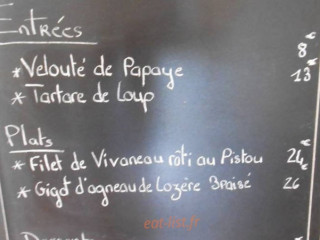 Entrées
* Velouté de Papaye 8€
* Tartare de Loup 13€
Plats
* Filet de Vivaneau rôti au Pistou 24€
* Gigot d'agneau de Lozère Braisé 26